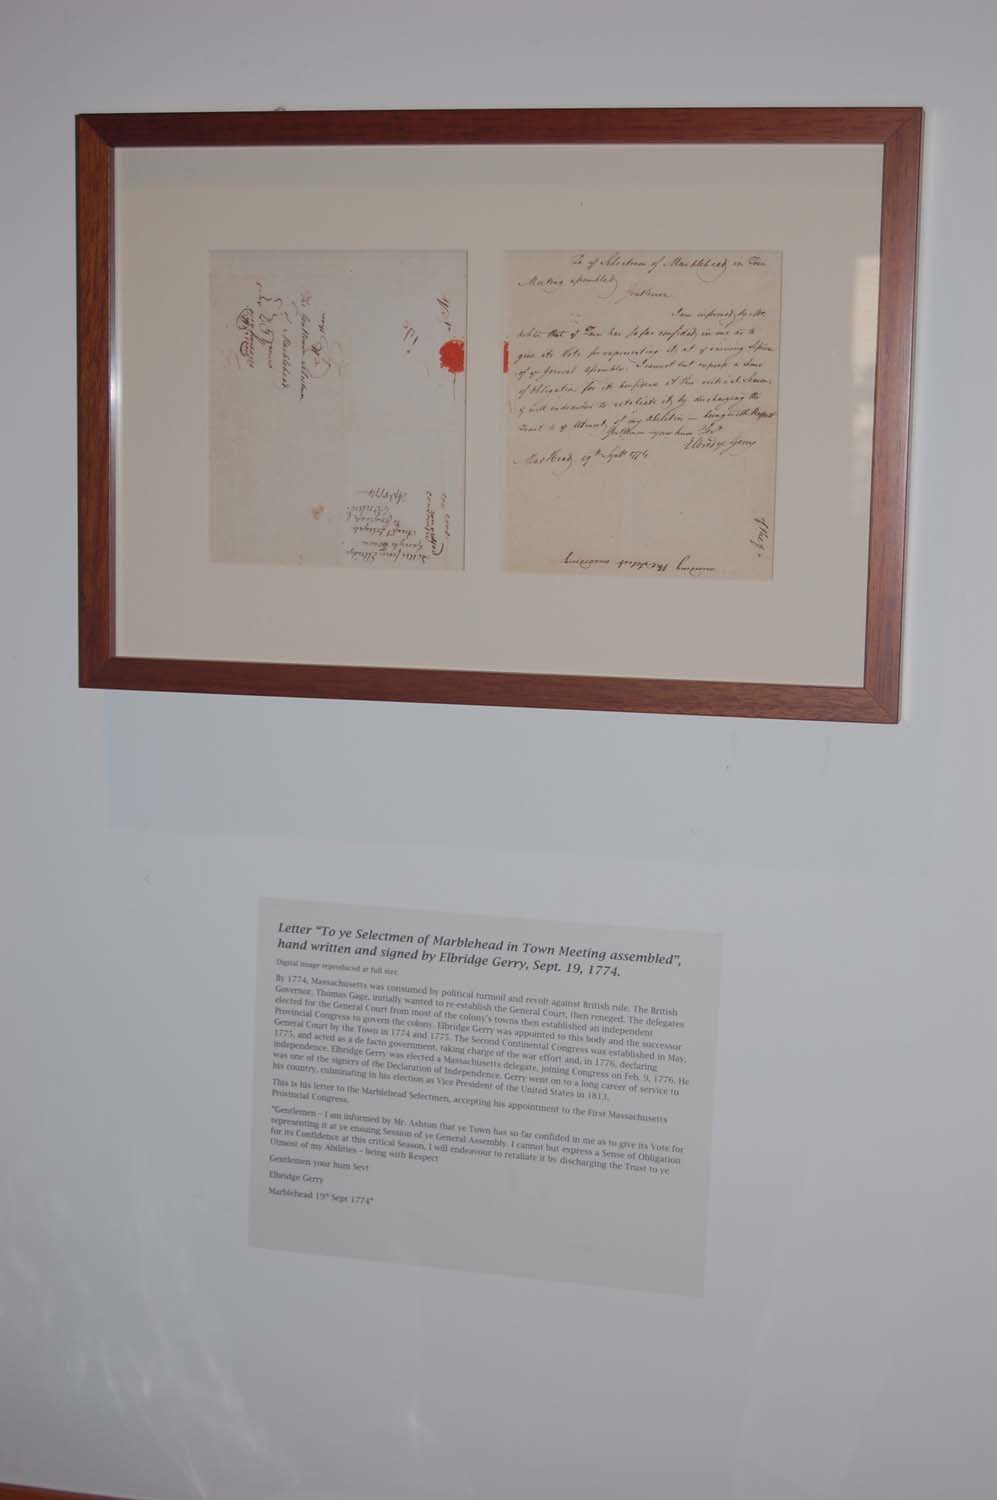 To ye Selectmen of Marblehead in Town
Meeting assembled
Gentlemen
I am informed by Mr.
Ashton that ye Town has so far confided in me as to
give its Vote for representing it at ye ensuing Session
of ye General Assembly. I cannot but express a Sense
of Obligation for its Confidence at this critical Season,
I will endeavour to retaliate it by discharging the
Trust to ye Utmost of my Abilities — being with Respect
Gentlemen your hum Servt
Elbridge Gerry
19th Sept 1774
Letter “To ye Selectmen of Marblehead in Town Meeting assembled”,
hand written and signed by Elbridge Gerry, Sept. 19, 1774.
Digital image reproduced at full size.
By 1774, Massachusetts was consumed by political turmoil and revolt against British rule. The British
Governor, Thomas Gage, initially wanted to re-establish the General Court, then reneged. The delegates
elected for the General Court from most of the colony's towns then established an independent
Provincial Congress to govern the colony. Elbridge Gerry was appointed to this body and the successor
General Court by the Town in 1774 and 1775. The Second Continental Congress was established in May,
1775, and acted as a de facto government, taking charge of the war effort and, in 1776, declaring
independence. Elbridge Gerry was elected a Massachusetts delegate, joining Congress on Feb. 9, 1776. He
was one of the signers of the Declaration of Independence. Gerry went on to a long career of service to
his country, culminating in his election as Vice President of the United States in 1813.
This is his letter to the Marblehead Selectmen, accepting his appointment to the First Massachusetts
Provincial Congress.
“Gentlemen – I am informed by Mr. Ashton that ye Town has so far confided in me as to give its Vote for
representing it at ye ensuing Session of ye General Assembly. I cannot but express a Sense of Obligation
for its Confidence at this critical Season, I will endeavour to retaliate it by discharging the Trust to ye
Utmost of my Abilities – being with Respect
Gentlemen your hum Sevt
Elbridge Gerry
Marblehead 19th Sept 1774”